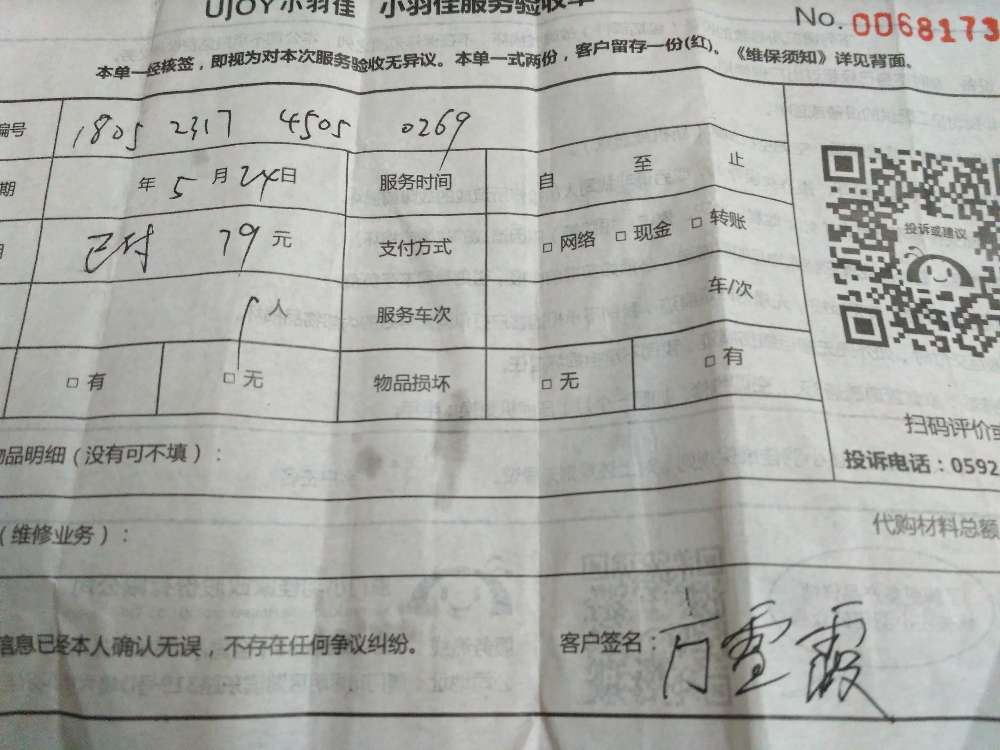 UJOY小羽佳 小羽佳服务验收单
No. 0068173
本单一经核签，即视为对本次服务验收无异议。本单一式两份，客户留存一份(红)。《维保须知》详见背面。
编号 1805 2317 4505 0269
期 年 5 月 24 日 服务时间 自 至 止
已付 79 元 支付方式 □ 网络 □ 现金 □ 转账
人 服务车次 车/次
□ 有 □ 无 物品损坏 □ 无 □ 有
投诉或建议
扫码评价或
投诉电话：0592
物品明细（没有可不填）：
（维修业务）：
代购材料总额
信息已经本人确认无误，不存在任何争议纠纷。 客户签名：万雪霞